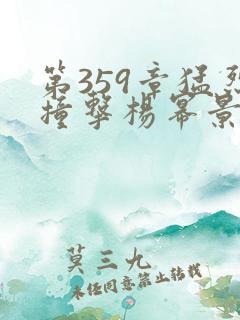 第359章猛烈
撞撃楊冪景
莫三九
未经同意禁止转载